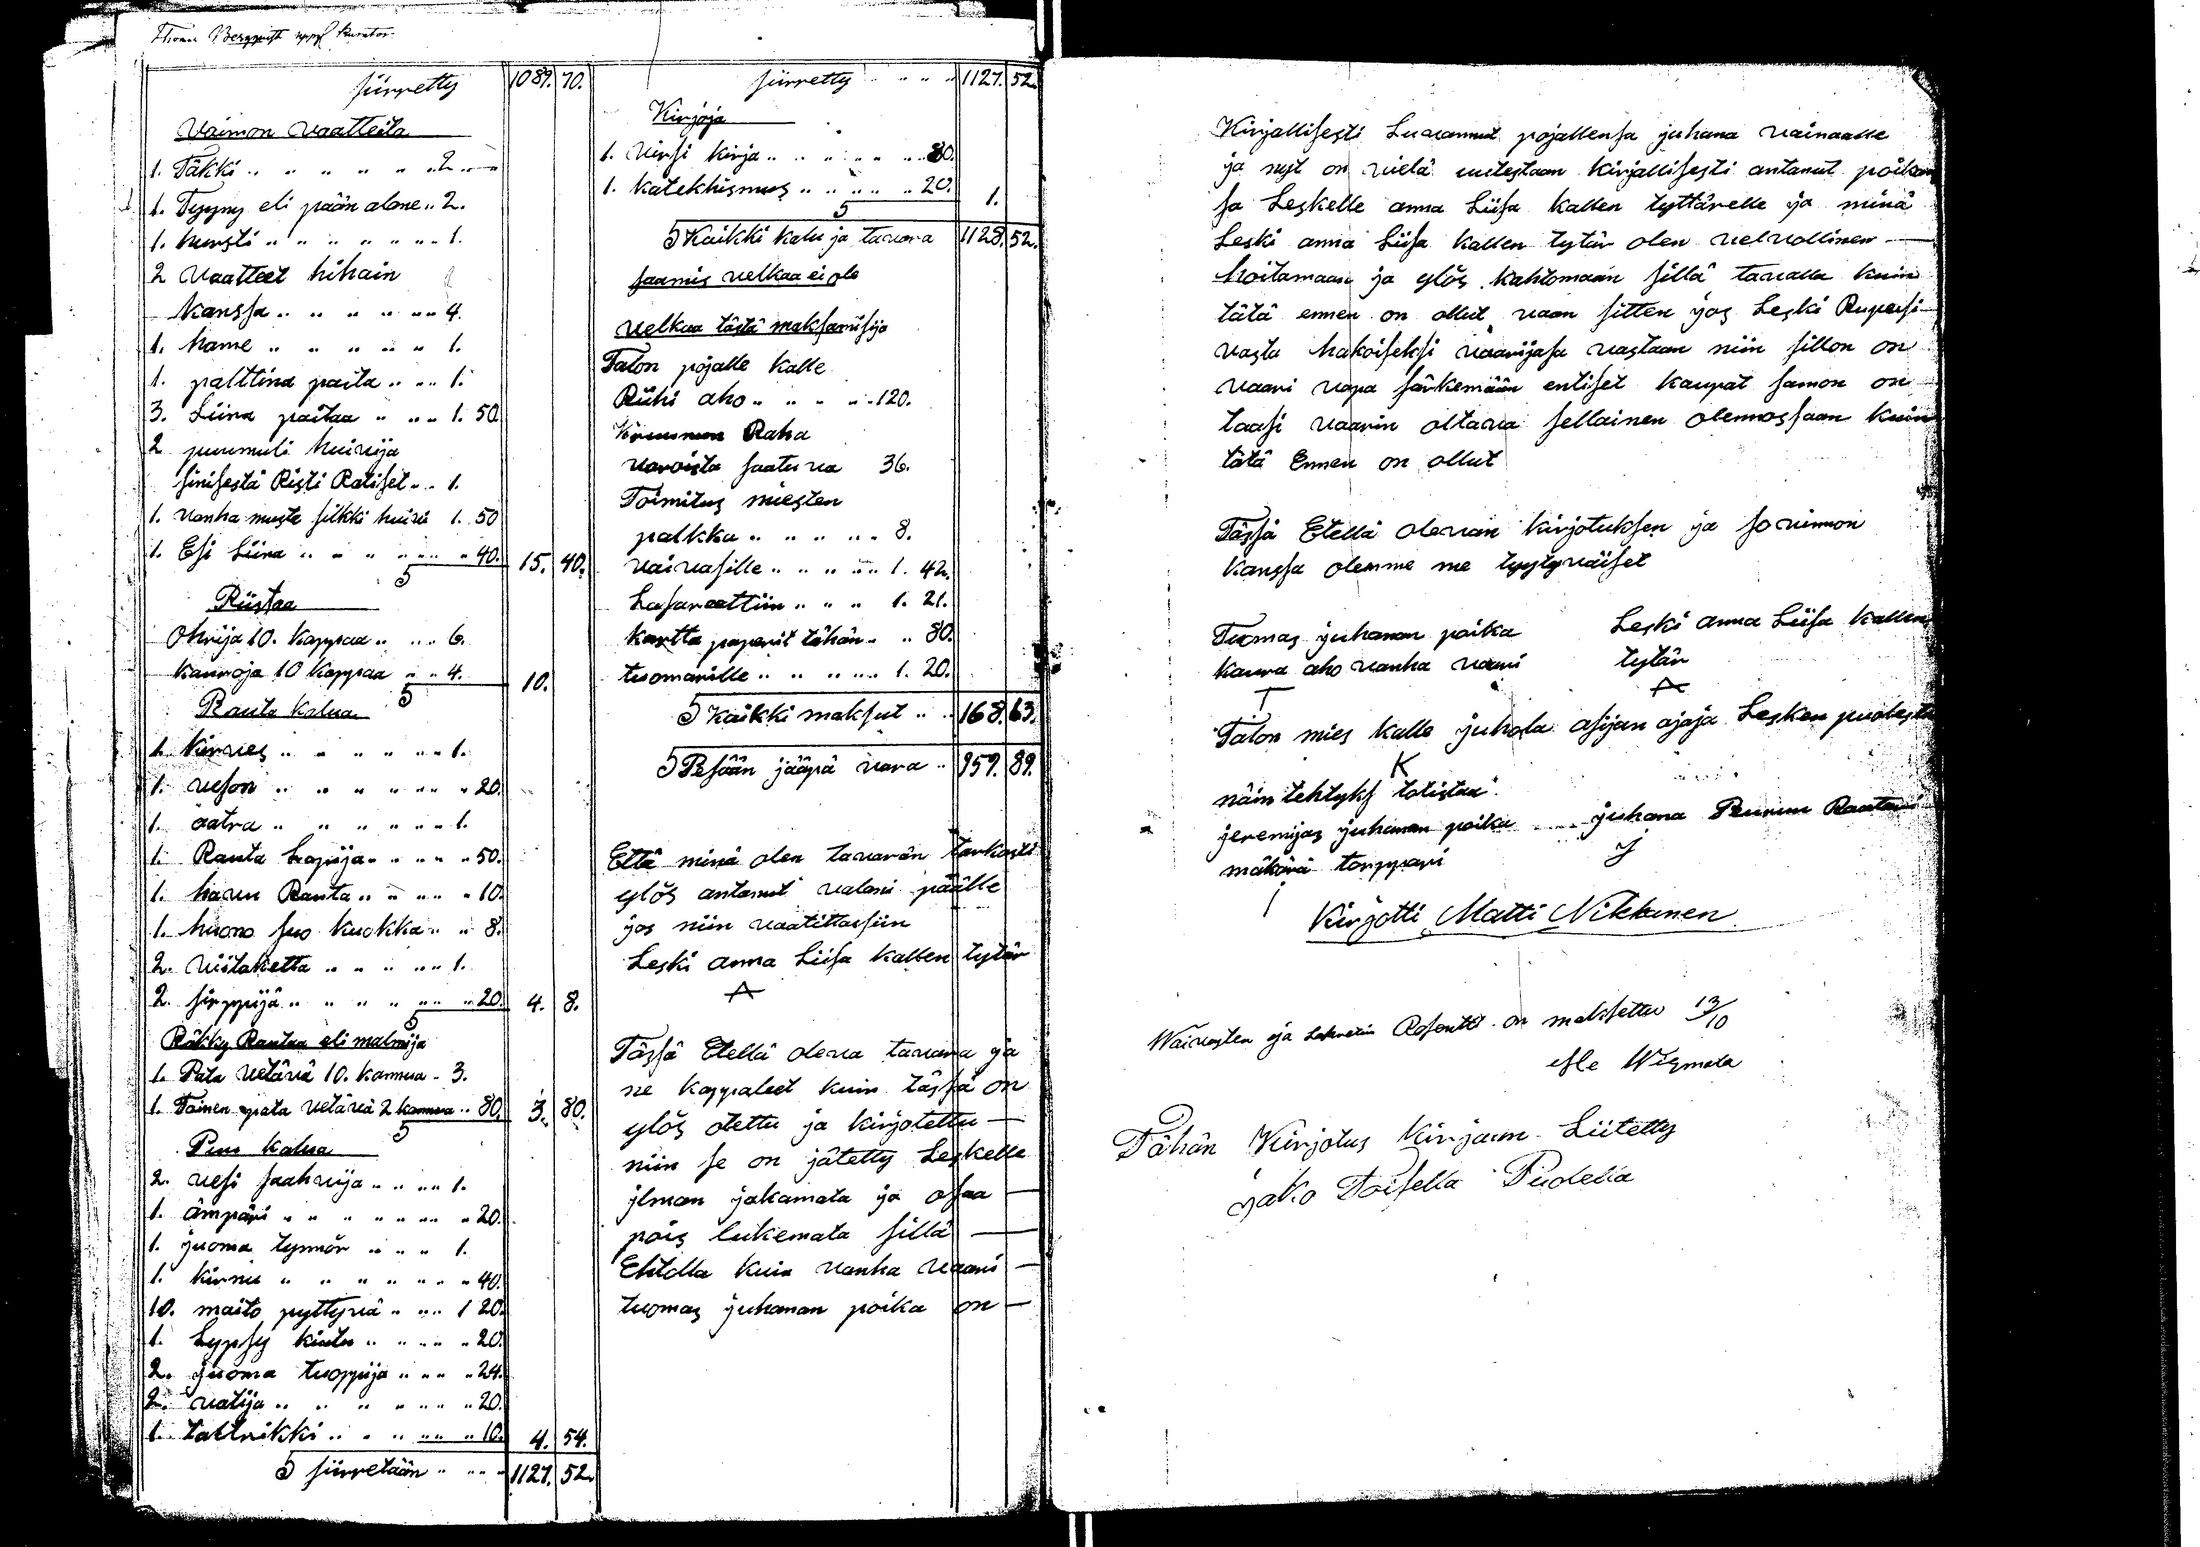 Thomas Bergqvist uppg Kurator.
siirretty 1089. 70.
Vaimon vaatteita
1. Täkki .. .. .. .. .. 2 —
1. Tyyny eli pään alane .. 2.
1. hursti .. .. .. .. .. 1.
2 vaatteet hihain
kanssa .. .. .. .. .. 4.
1. hame .. .. .. .. .. 1.
1. palttina paita .. .. .. 1.
3. Liina paitaa .. .. .. 1. 50
2 puumuli huivija
sinisestä Risti Ratiset .. .. 1.
1. vanha musta silkki huivi 1. 50
1. Esi Liina .. .. .. .. .. 40. 15. 40.
Riistaa
Ohrija 10. kappaa .. .. .. 6.
kauroja 10 kappaa .. .. 4. 10.
Rauta kalua
1. kirves .. .. .. .. .. 1.
1. vesuri .. .. .. .. .. 20.
1. aatra .. .. .. .. .. 1.
1. Rauta Lapija .. .. .. .. 50.
1. harvu Rauta .. .. .. .. 10.
1. huono suo kuokka .. .. 8.
2. viitaketta .. .. .. .. 1.
2. sirppijä .. .. .. .. .. 20. 4. 8.
Räkky Rautaa eli malmija
1. Pata vetävä 10. kannua .. 3.
1. Toinen pata vetävä 2 kannua .. 80. 3. 80.
Puu kalua
2. vesi saahvija .. .. .. 1.
1. ämpäri .. .. .. .. .. 20.
1. juoma tynnör .. .. .. 1.
1. kirnu .. .. .. .. .. 40.
10. maito pyttyvä .. .. .. 1 20.
1. Lypsy kiulu .. .. .. .. 20.
2. juoma tuoppija .. .. .. 24.
2. vatija .. .. .. .. .. 20.
1. taltrikki .. .. .. .. .. 10. 4. 54.
S siirretään .. .. .. 1127. 52.
siirretty .. .. .. 1127. 52.
Kirjoja
1. virsi kirja .. .. .. .. .. 80.
1. katekhismus .. .. .. .. 20. 1.
S Kaikki kalu ja tavara 1128. 52.
saamis velkaa ei ole
velkaa tästä maksamisija
Talon pojalle kalle
Riihi aho .. .. .. .. 120.
Kruunun Raha
varoista saatuva 36.
Toimitus miesten
palkka .. .. .. .. .. 8.
vaivasille .. .. .. .. 1. 42.
Lasareettiin .. .. .. 1. 21.
kartta paperit tähän .. .. 80.
tuomarille .. .. .. .. 1. 20.
S Kaikki maksut .. .. 168. 63.
S Pesään jääpä vara .. 959. 89.
Että minä olen tavarän tarkasti
ylös antanut valani päälle
jos niin vaatittaisiin
Leski anna Liisa kallen tytär
A
Tässä Etellä oleva tavara ja
ne kappaleet kuin tässä on
ylös otettu ja kirjotettu —
niin se on jätetty Leskelle
jlman jakamata ja osaa —
pois lukemata sillä —
Ehtolla kuin vanha vaari —
tuomas juhanan poika on —
Kirjallisesti Luvannut pojallensa juhana vainaalle
ja nyt on vielä uutestaan kirjallisesti antanut poikan
sa Leskelle anna Liisa kallen tyttärelle ja minä
Leski anna Liisa kallen tytär olen velvollinen —
hoitamaan ja ylös kahtomaan sillä tavalla kuin
tätä ennen on ollut vaan sitten jos Leski Rupeisi
vasta hakoiseksi vaarijasa vastaan niin sillon on
vaari vapa särkemään entiset kaupat samon on
taasi vaarin oltava sellainen olennossaan kuin
tätä Ennen on ollut
Tässä Etellä olevan kirjotuksen ja sovinnon
kanssa olemme me tyytyväiset
Tuomas juhanan poika Leski anna Liisa kallen
kaura aho vanha vaari tytär
T A
Talon mies kalle juhola asijan ajaja Lesken puolesta
K
näin tehtyks totistaa
jeremijas juhanan poika juhana Peuran Rautani
mäkärä torppari J
i
Kirjotti Matti Nikkanen
Waivasten ja Lasaretin Rosentti on maksettu 13/10
Tähän Kirjotus Kirjaan Liitetty
Jako Toisella Puolella